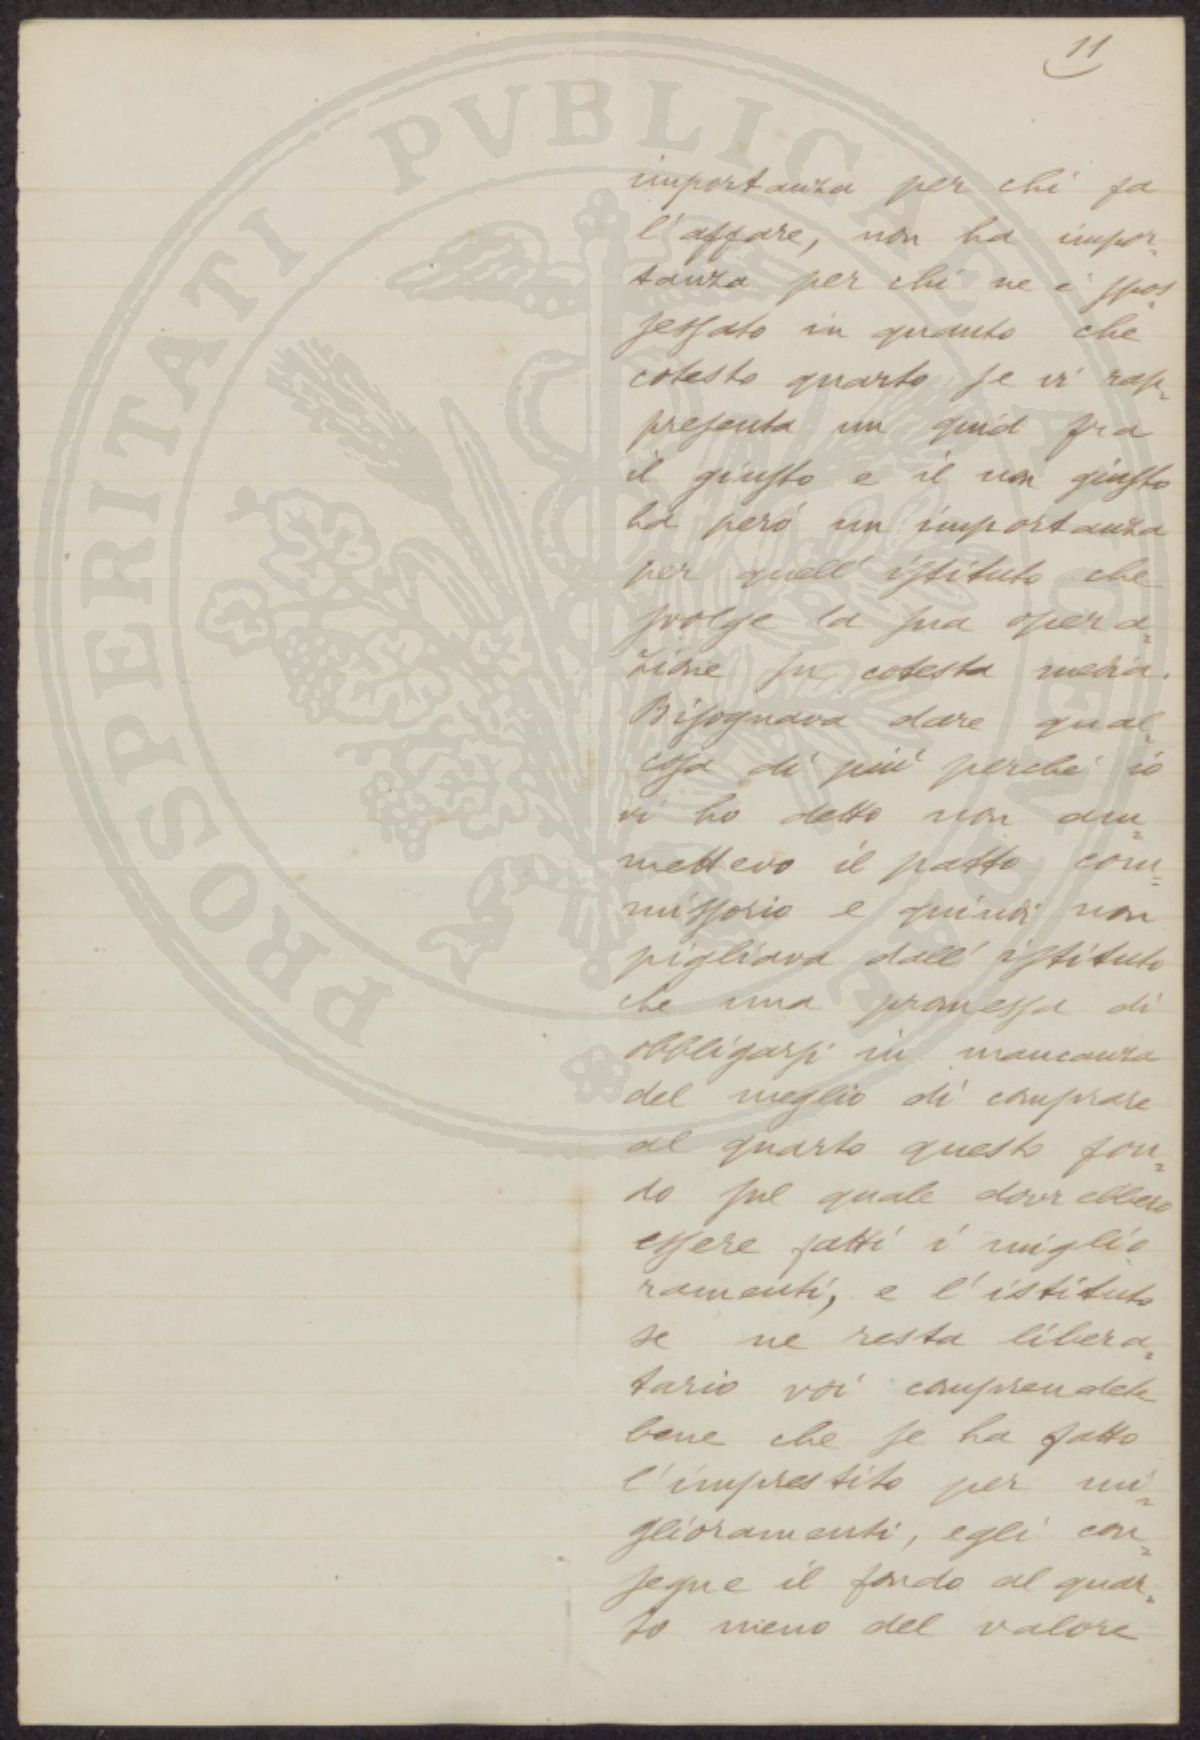 11
PROSPERITATI PVBLICAE AVGENDAE
importanza per chi fa
l'affare, non ha impor=
tanza per chi ne è spos=
sessato in quanto che
cotesto quarto se vi rap=
presenta un quid fra
il giusto e il non giusto
ha però un importanza
per quell'istituto che
svolge la sua opera=
zione su cotesta media.
Bisognava dare qual=
cosa di più perché io
vi ho detto non am=
mettevo il patto com=
missorio e quindi non
pigliava dall'istituto
che una promessa di
obbligarsi in mancanza
del meglio di comprare
al quarto questo fon=
do sul quale dovrebbero
essere fatti i miglio
ramenti, e l'istituto
se ne resta libera=
tario voi comprendete
bene che se ha fatto
l'imprestito per mi=
glioramenti, egli con=
segue il fondo al quar=
to meno del valore